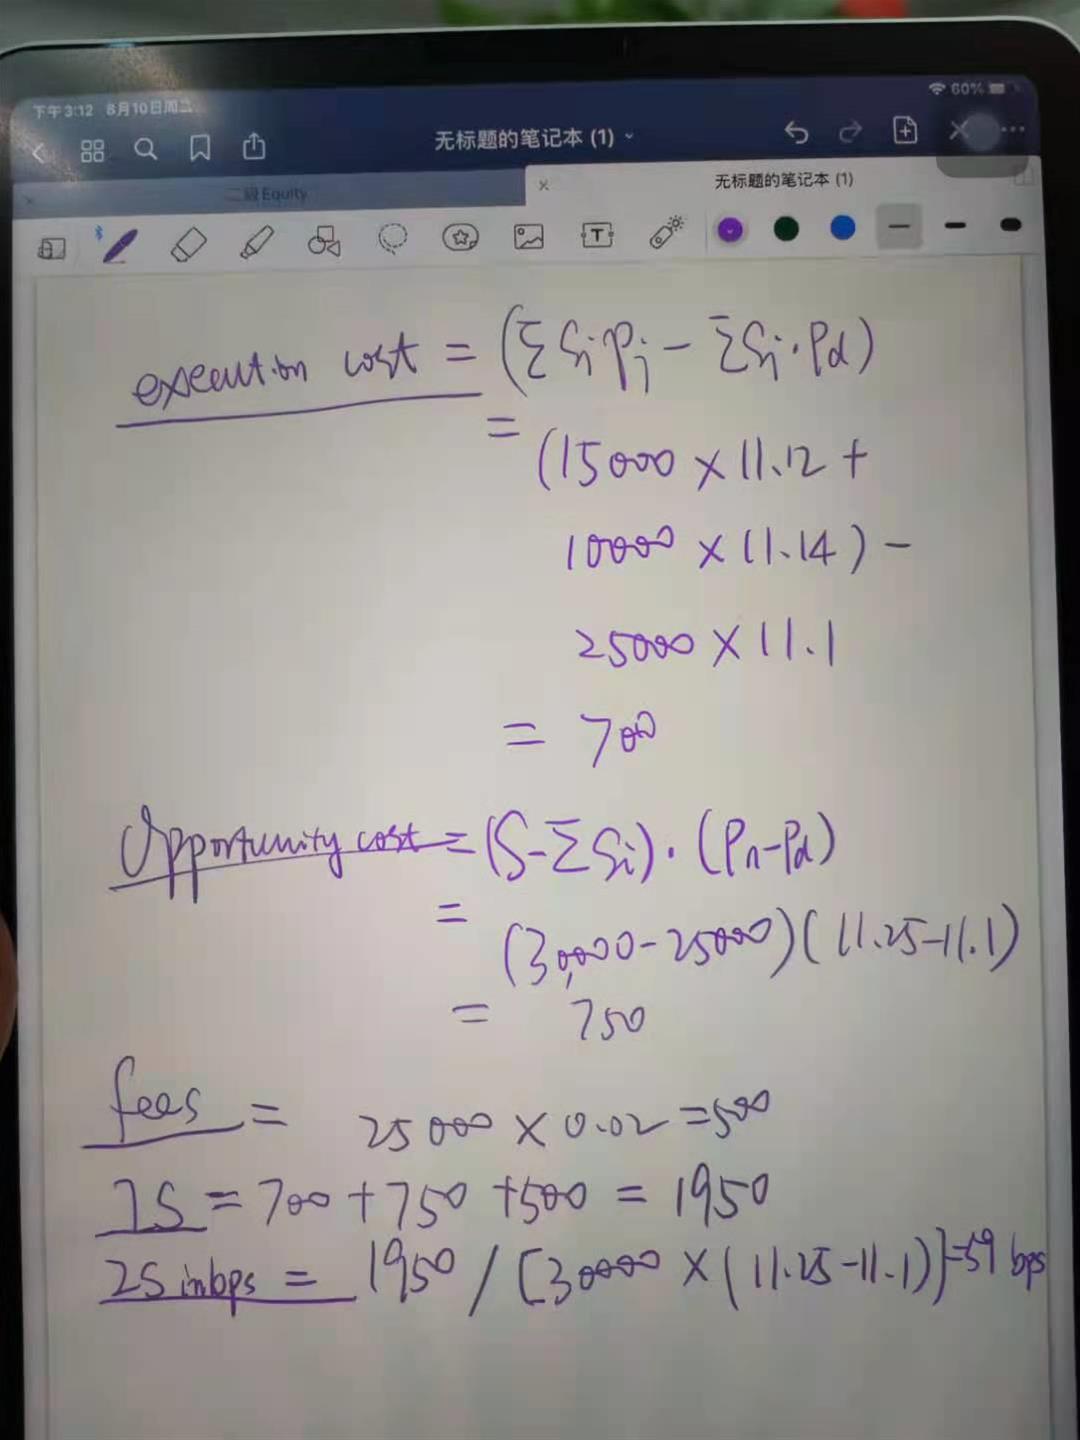 下午3:12 8月10日周二
60%
无标题的笔记本 (1)
二级 Equity
无标题的笔记本 (1)
execution cost = (ΣSjPj - ΣSj·Pd)
= (15000 × 11.12 +
10000 × 11.14) -
25000 × 11.1
= 700
Opportunity cost = (S-ΣSi)·(Pn-Pd)
= (30,000-25000)(11.25-11.1)
= 750
fees = 25000 × 0.02 = 500
IS = 700 + 750 + 500 = 1950
IS in bps = 1950 / [30000 × (11.25-11.1)] = 59 bps